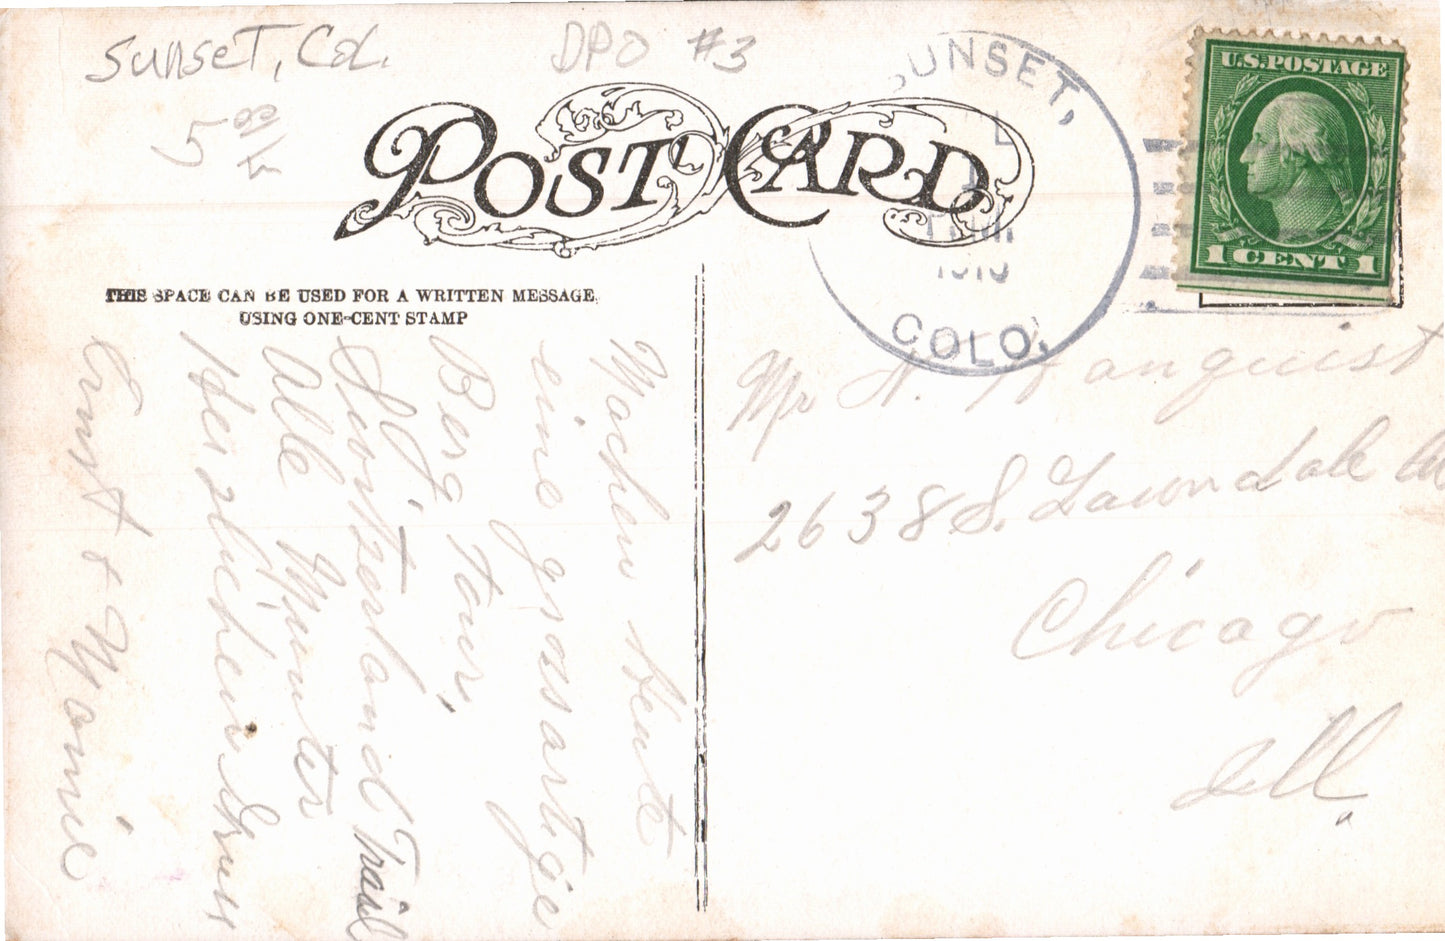 Sunset, Col. DPO #3
5
POST CARD
THIS SPACE CAN BE USED FOR A WRITTEN MESSAGE,
USING ONE-CENT STAMP
SUNSET,
COLO.
U.S. POSTAGE
1 CENT 1
Mr
2638 S. Lawndale
Chicago
Ill.
Machen heute
eine grossartige
Berg Tour,
Switzerland Trail
Alle Munter
Herzlichen Gruss
Ernst & Mamie